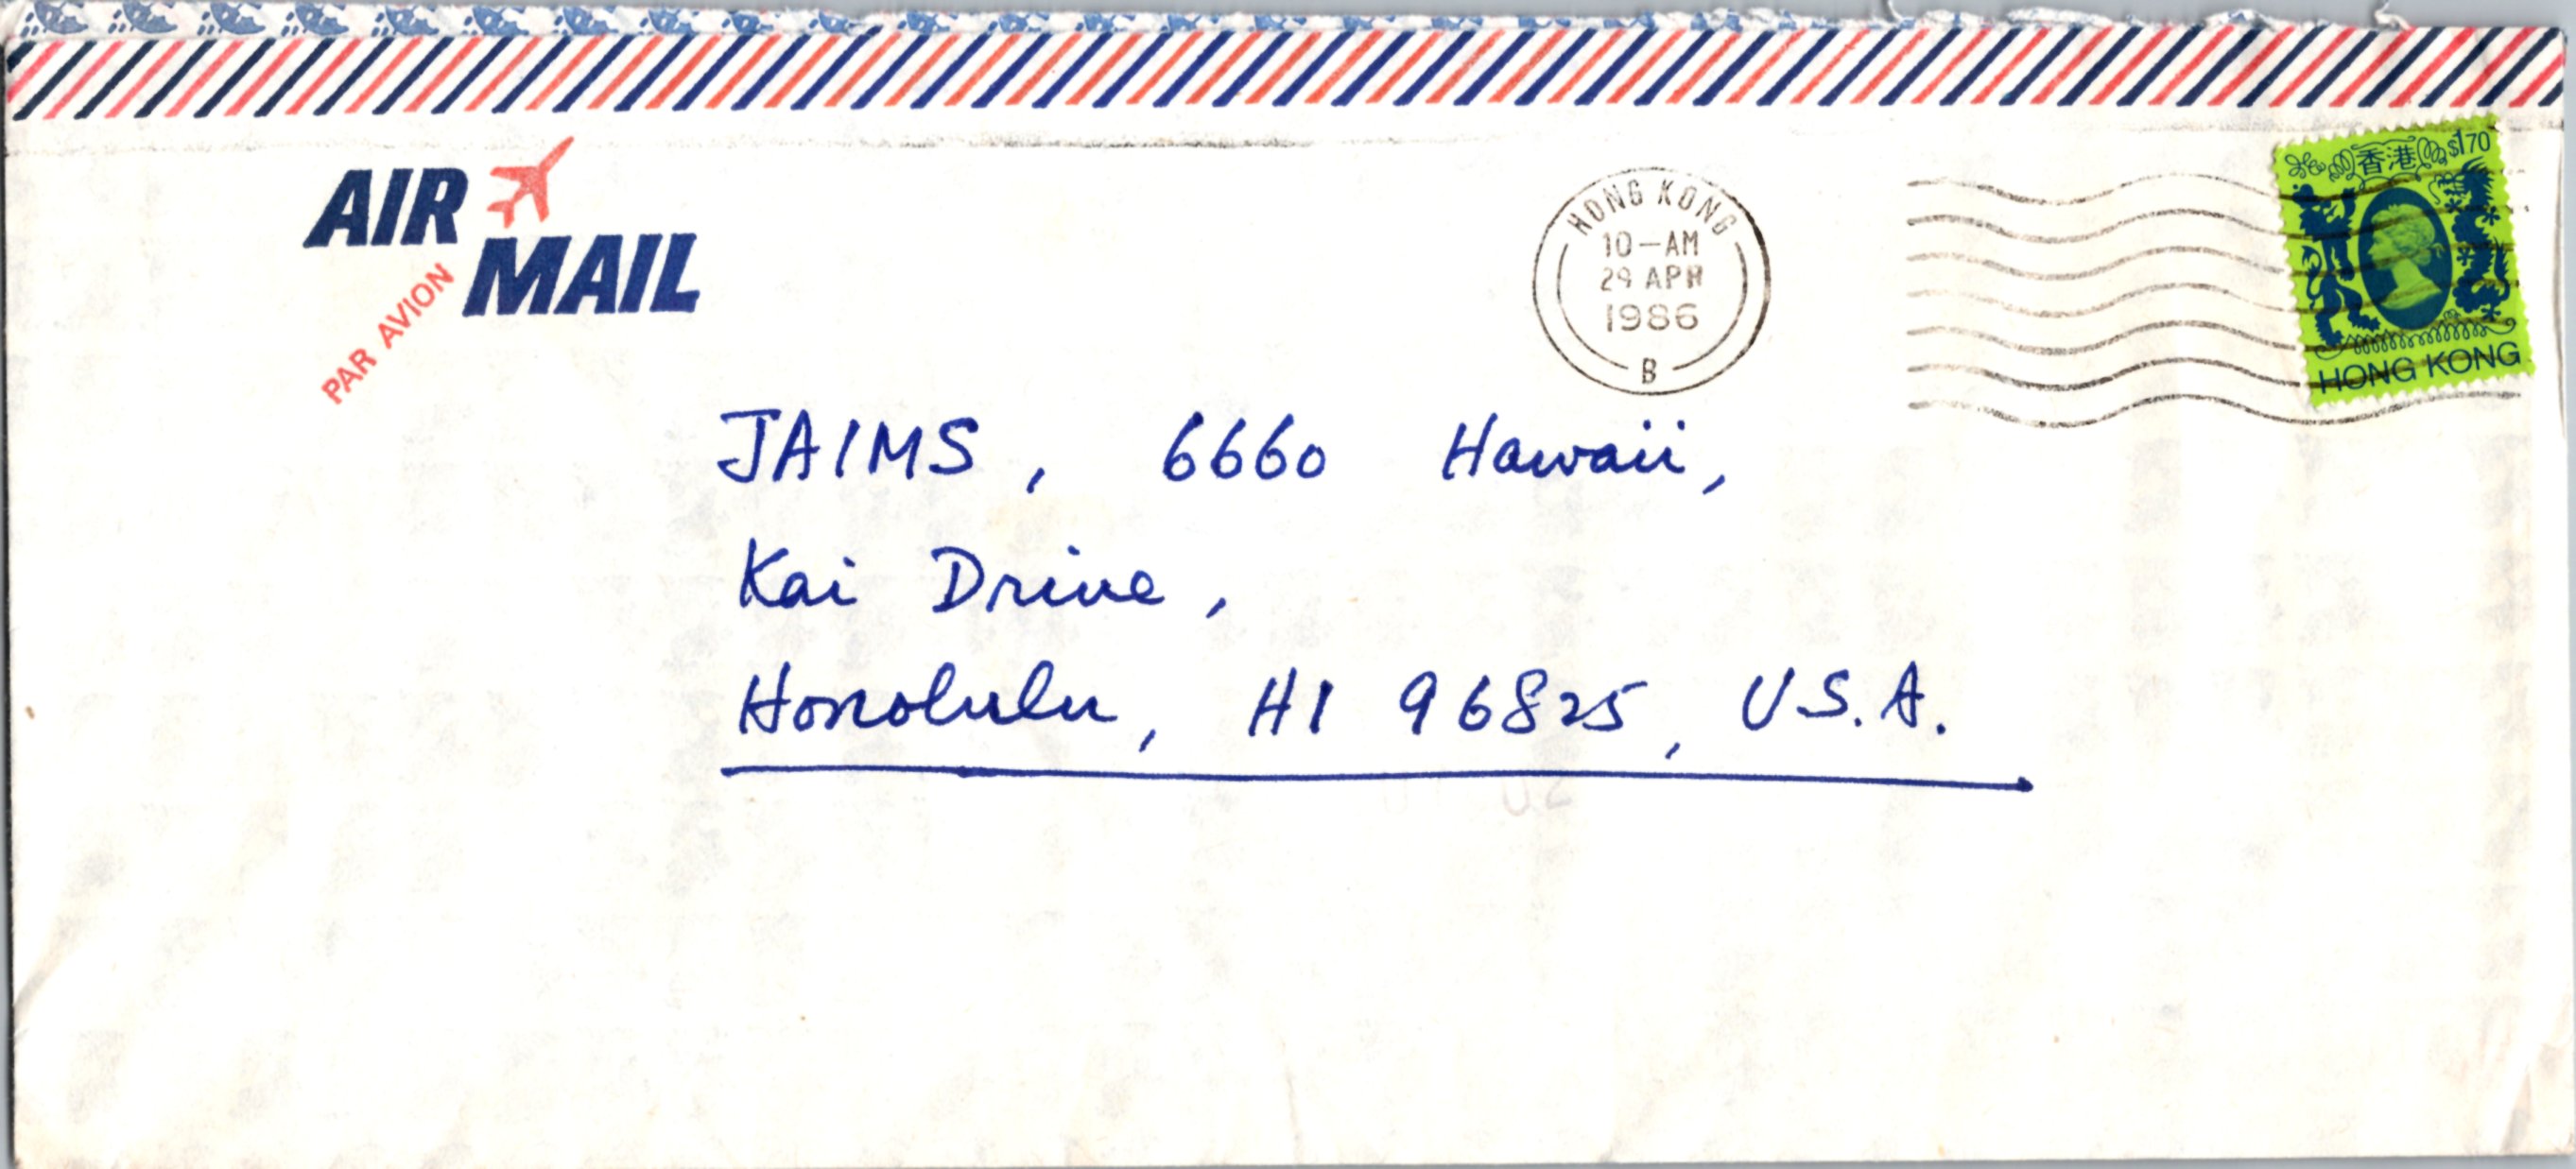 AIR
MAIL
PAR AVION
HONG KONG
10-AM
29 APR
1986
B
香港 $1.70
HONG KONG
JAIMS, 6660 Hawaii,
Kai Drive,
Honolulu, HI 96825, U.S.A.